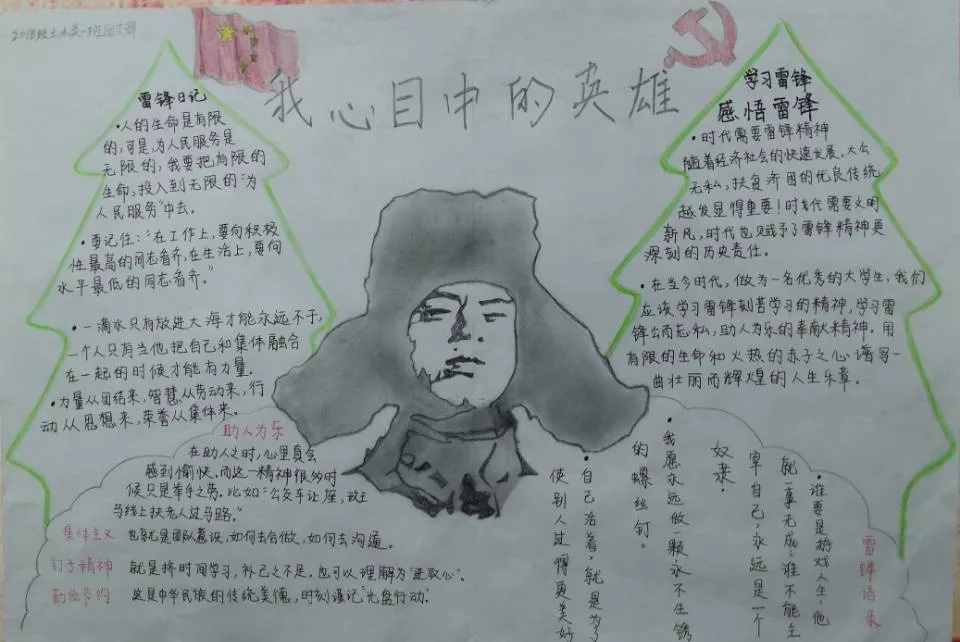 2018级土木类一班团支部
我心目中的英雄
雷锋日记
·人的生命是有限
的,可是,为人民服务是
无限的,我要把有限的
生命,投入到无限的“为
人民服务”中去。
·要记住:“在工作上,要向积极
性最高的同志看齐,在生活上,要向
水平最低的同志看齐。”
·一滴水只有放进大海才能永远不干,
一个人只有当他把自己和集体融合
在一起的时候才能有力量。
·力量从团结来,智慧从劳动来,行
动从思想来,荣誉从集体来。
学习雷锋
感悟雷锋
·时代需要雷锋精神
随着经济社会的快速发展,大公
无私,扶贫济困的优良传统
越发显得重要!时代需要文明
新风,时代也赋予了雷锋精神更
深刻的历史责任。
·在当今时代,做为一名优秀的大学生,我们
应该学习雷锋刻苦学习的精神,学习雷
锋公而忘私,助人为乐的奉献精神。用
有限的生命和火热的赤子之心谱写一
曲壮丽而辉煌的人生乐章。
助人为乐
在助人之时,心里真会
感到愉快。而这一精神很多时
候只是举手之劳。比如“公交车让座,斑
马线上扶老人过马路。”
集体主义 也就是团队意识,如何去合做,如何去沟通。
钉子精神 就是挤时间学习,补己之不足。也可以理解为“进取心”。
勤俭节约 这是中华民族的传统美德,时刻谨记“光盘行动”
雷锋语录
·谁要是游戏人生,他
就一事无成;谁不能主
宰自己,永远是一个
奴隶。
·我愿永远做一颗永不生锈
的螺丝钉。
·自己活着,就是为了
使别人过得更美好